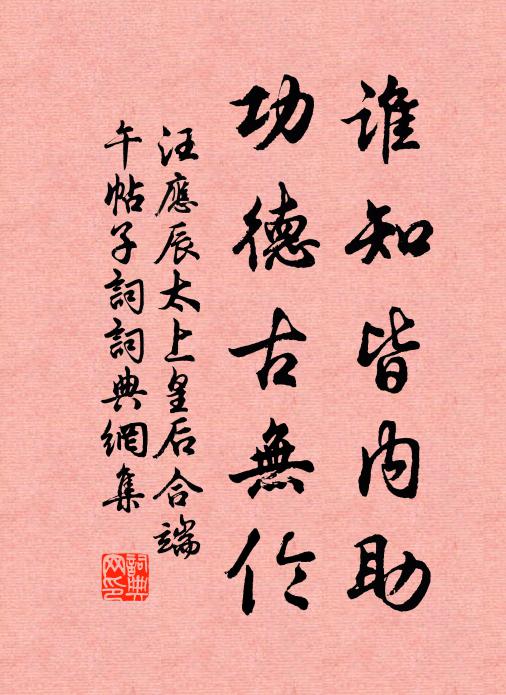 誰知皆内助
功德古無伦
汪應辰太上皇后合端
午帖子詞詞典網集
詞典
网印